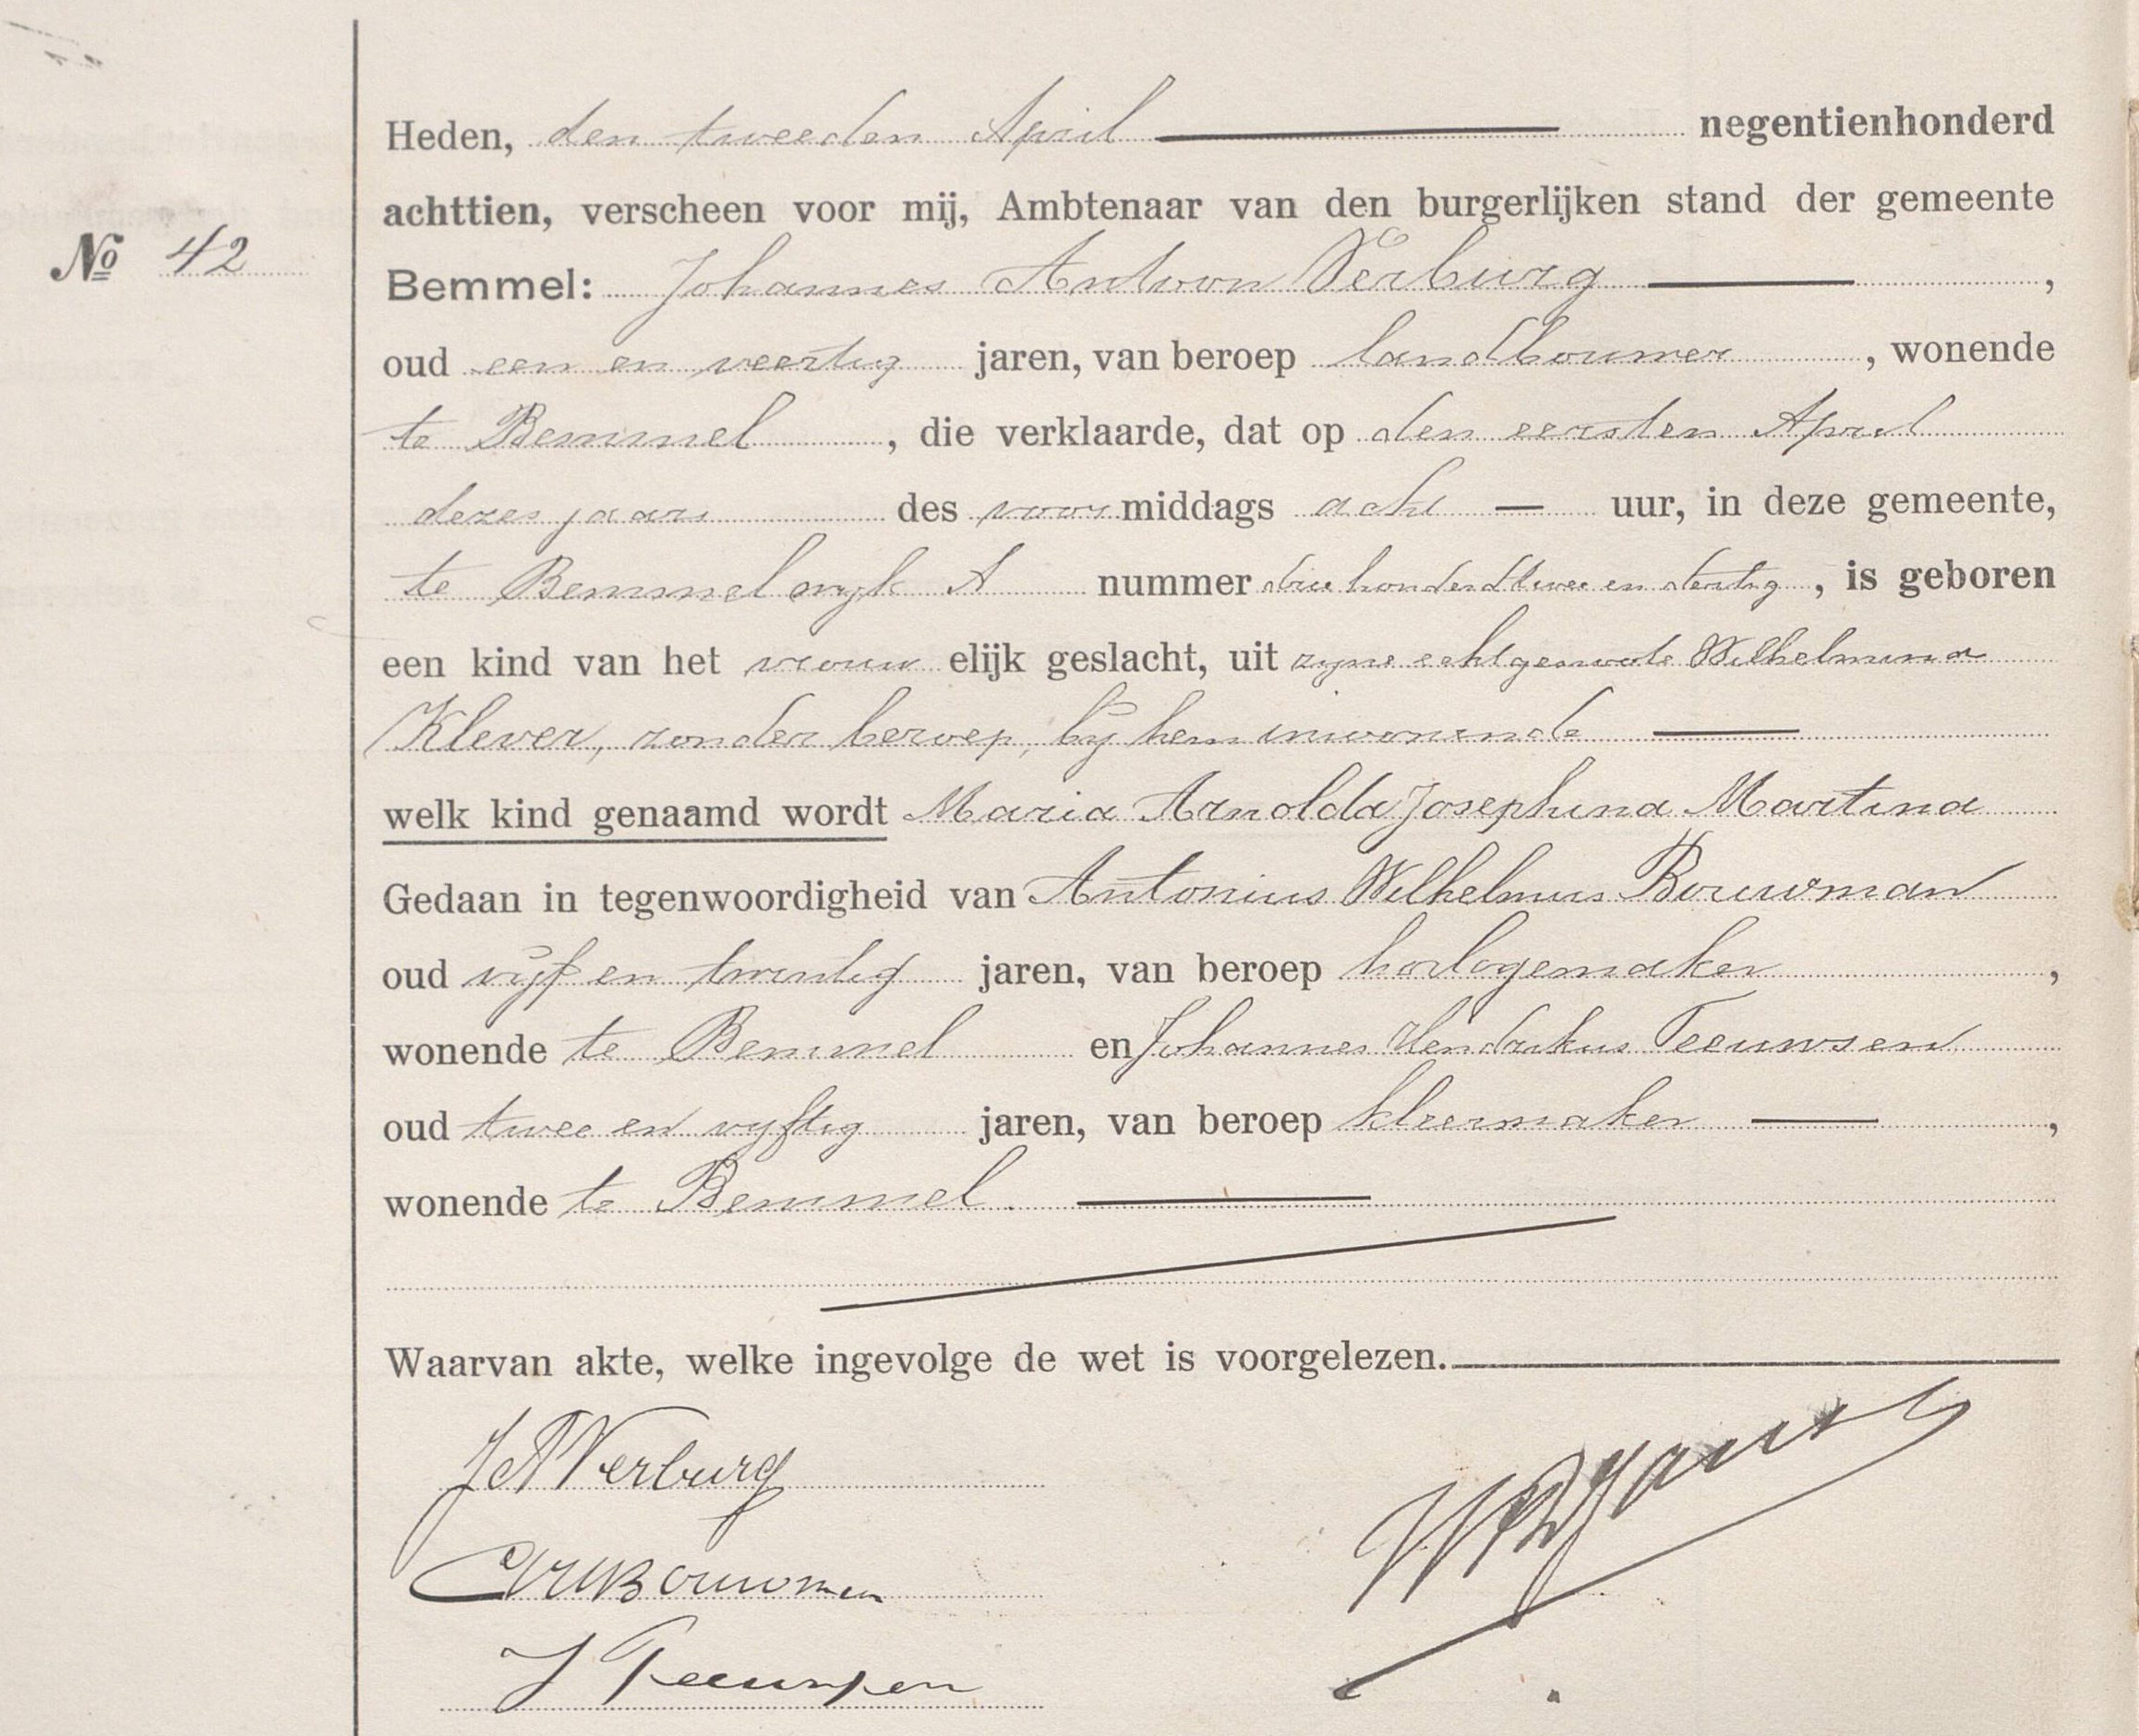 Heden, den tweeden April negentienhonderd
achttien, verscheen voor mij, Ambtenaar van den burgerlijken stand der gemeente
No 42
Bemmel: Johannes Antoon Verburg,
oud een en veertig jaren, van beroep landbouwer, wonende
te Bemmel, die verklaarde, dat op den eersten April
dezes jaars des voormiddags acht — uur, in deze gemeente,
te Bemmel wyk A nummer driehonderdtwee en dertig, is geboren
een kind van het vrouwelijk geslacht, uit zyne echtgenoote Wilhelmina
Klever, zonder beroep, bij hem inwonende
welk kind genaamd wordt Maria Arnolda Josephina Martina
Gedaan in tegenwoordigheid van Antonius Wilhelmus Bouwman
oud vijf en twintig jaren, van beroep horlogemaker,
wonende te Bemmel en Johannes Hendrikus Teeuwsen
oud twee en vyftig jaren, van beroep kleermaker —,
wonende te Bemmel.
Waarvan akte, welke ingevolge de wet is voorgelezen.
J A Verburg
AWBouwman
J Teeuwsen